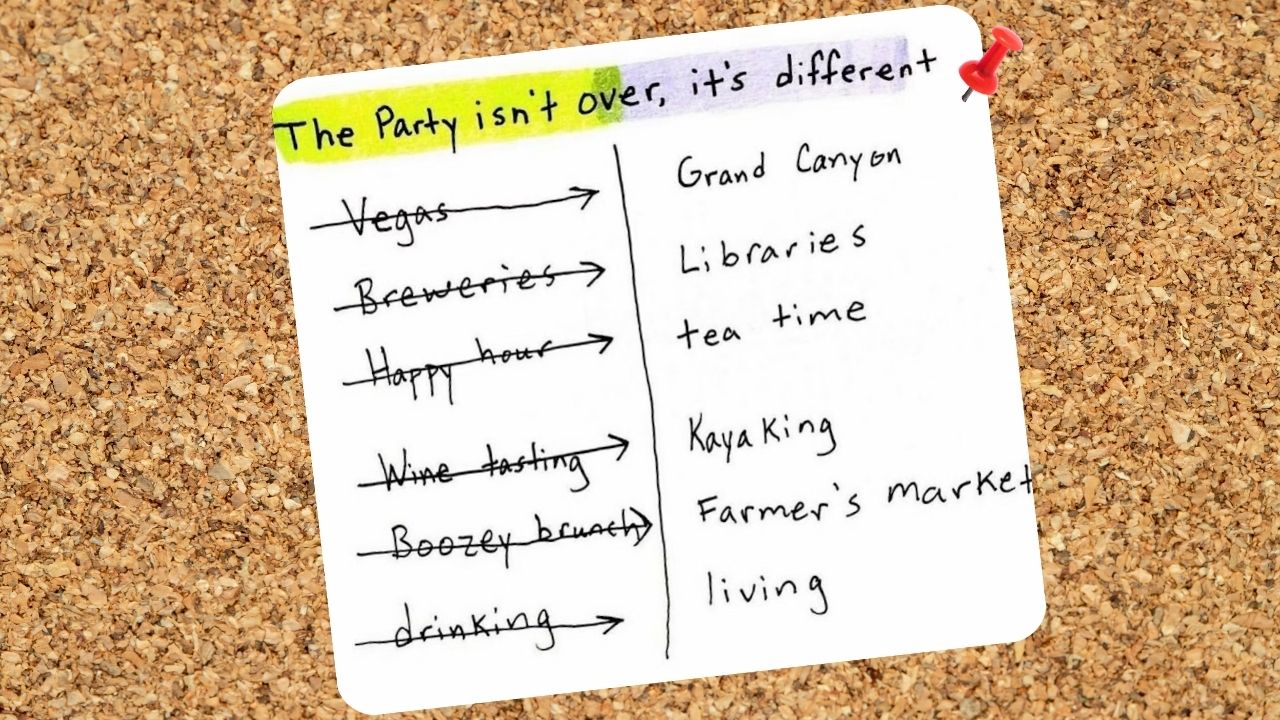 The Party isn't over, it's different
Vegas Grand Canyon
Breweries Libraries
Happy hour tea time
Wine tasting Kayaking
Boozey brunch Farmer's market
drinking living